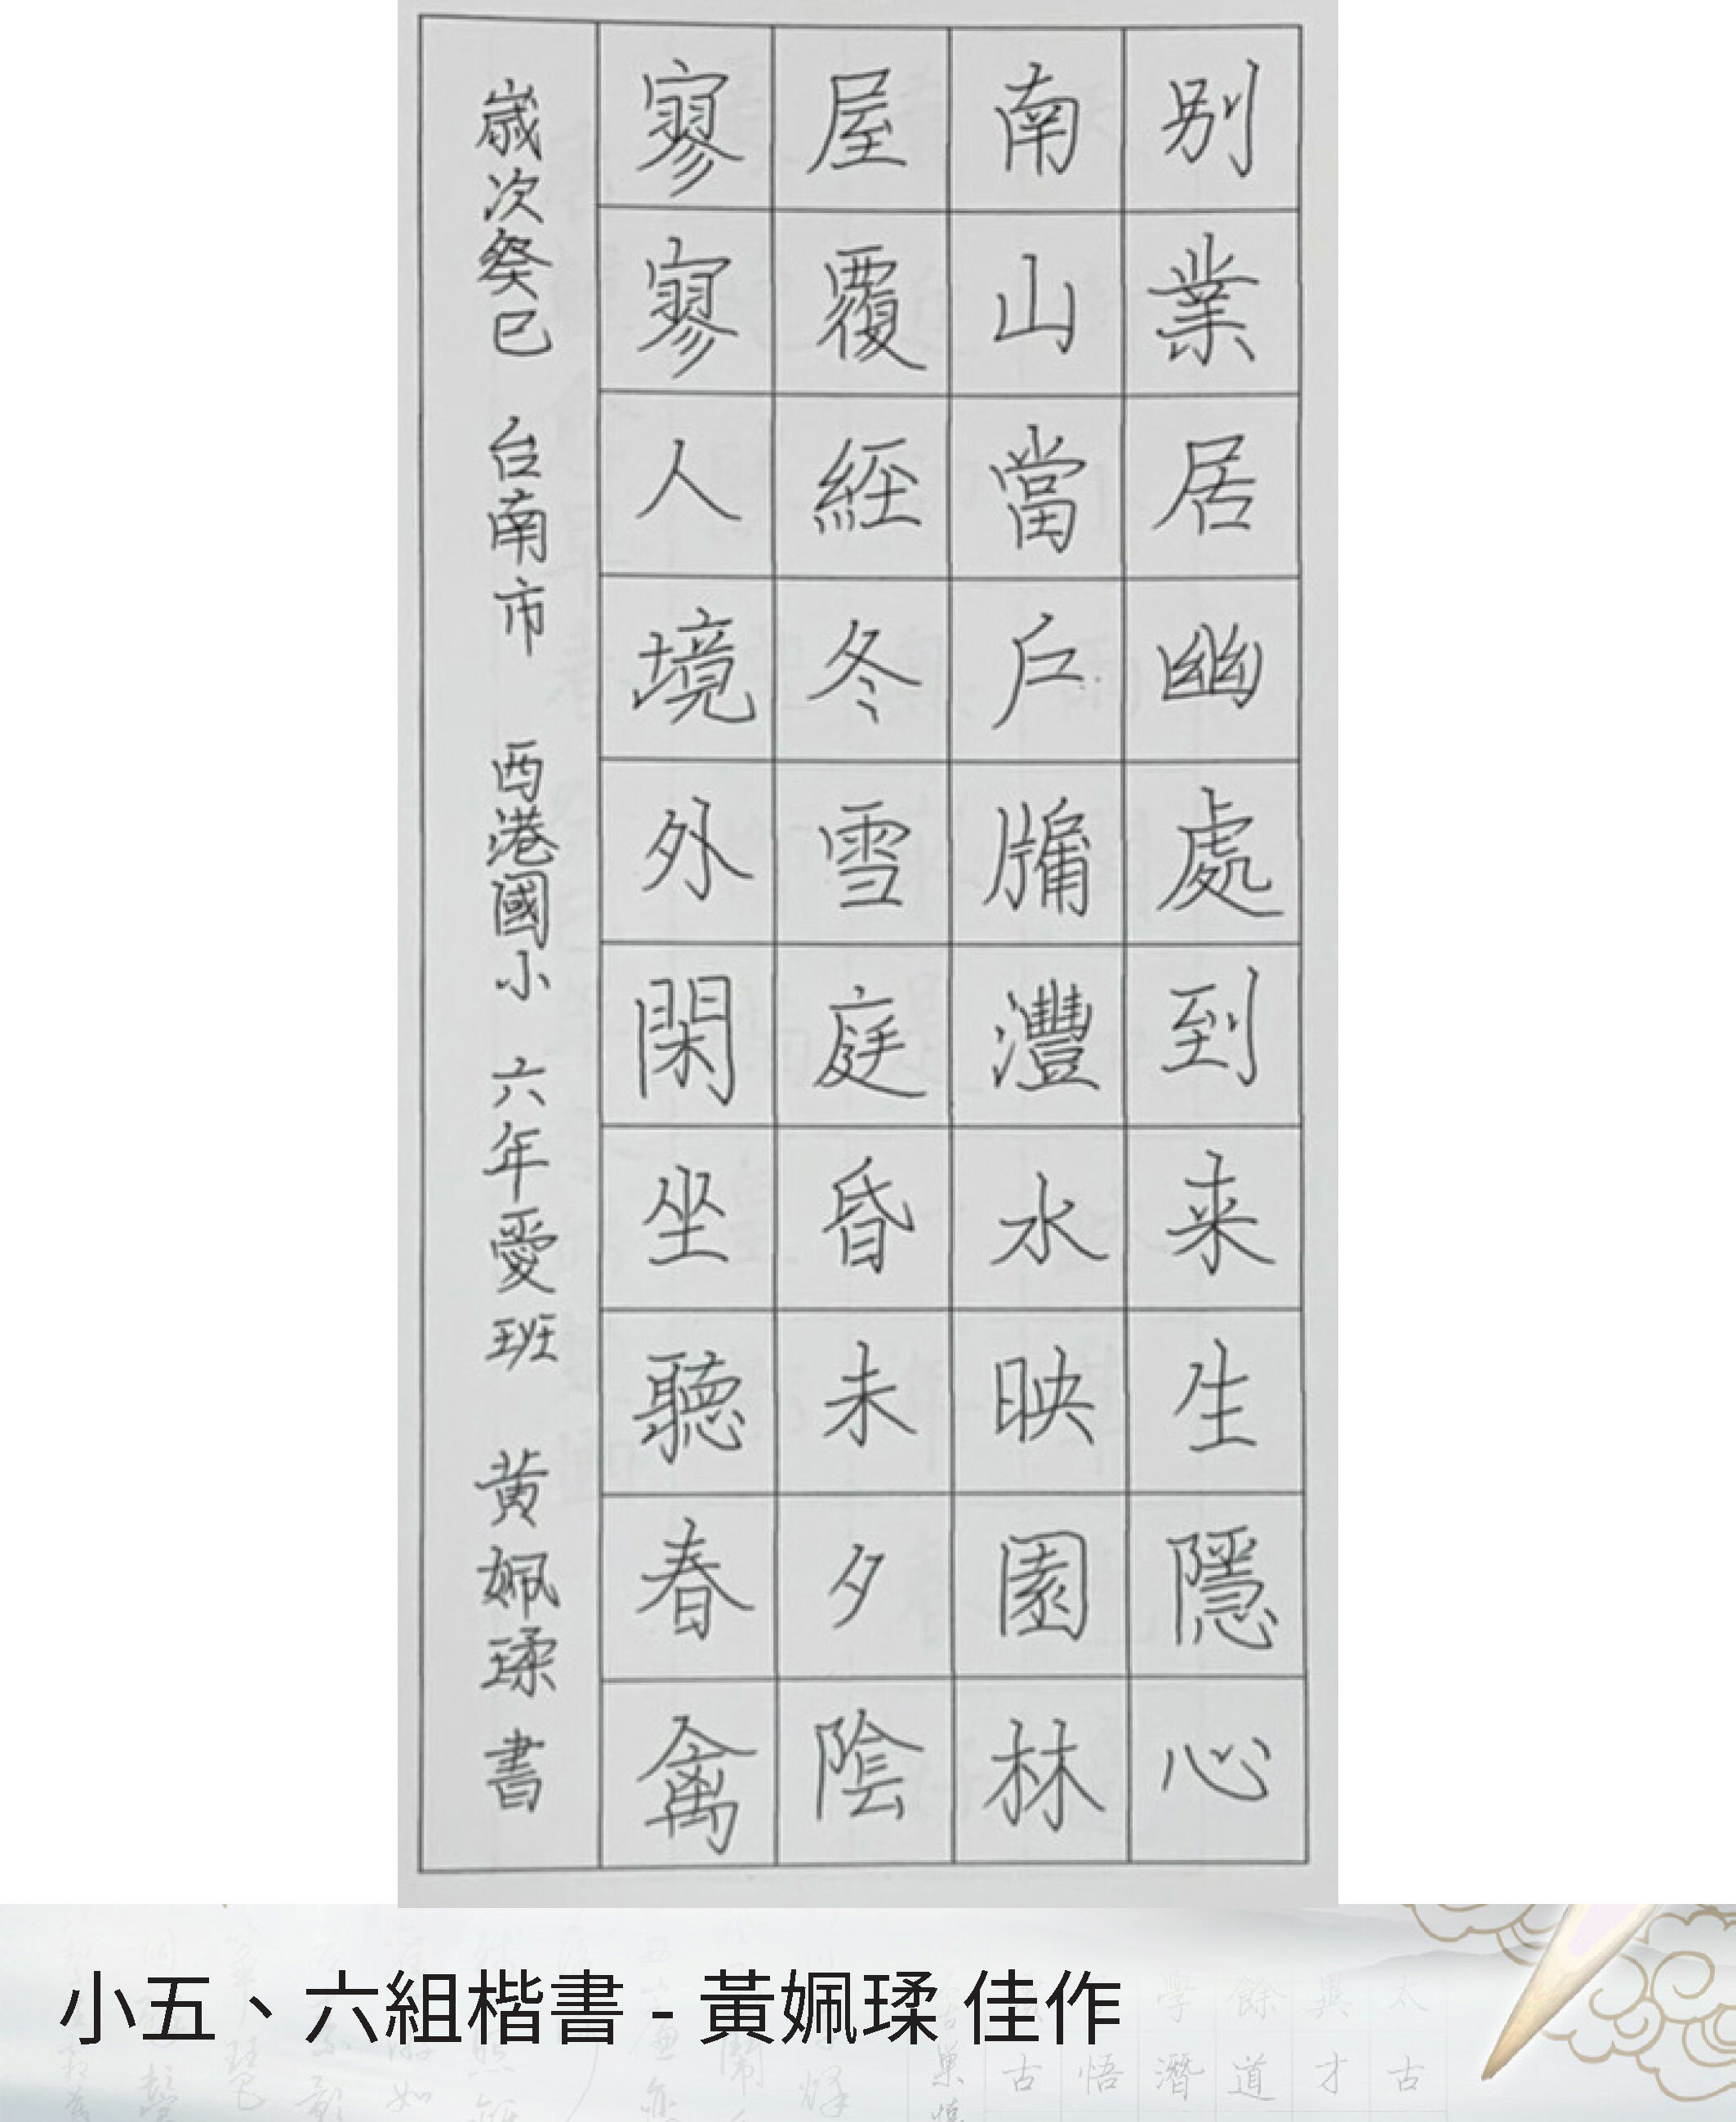 别業居幽處到来生隱心
南山當戶牖灃水映園林
屋覆經冬雪庭昏未夕陰
寥寥人境外閑坐聽春禽
歲次癸巳 台南市 西港國小 六年愛班 黃姵瑈書
小五、六組楷書 - 黃姵瑈 佳作